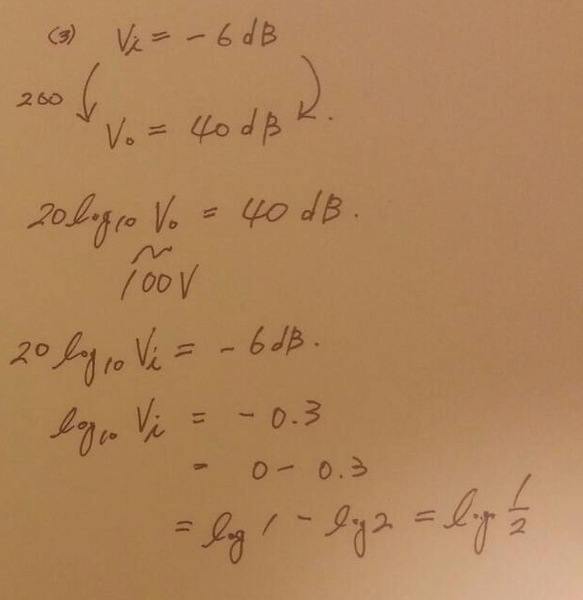 (3) Vi = -6 dB
200
Vo = 40 dB.
20 log10 Vo = 40 dB.
100 V
20 log10 Vi = -6 dB.
log10 Vi = -0.3
= 0 - 0.3
= log 1 - log 2 = log 1/2